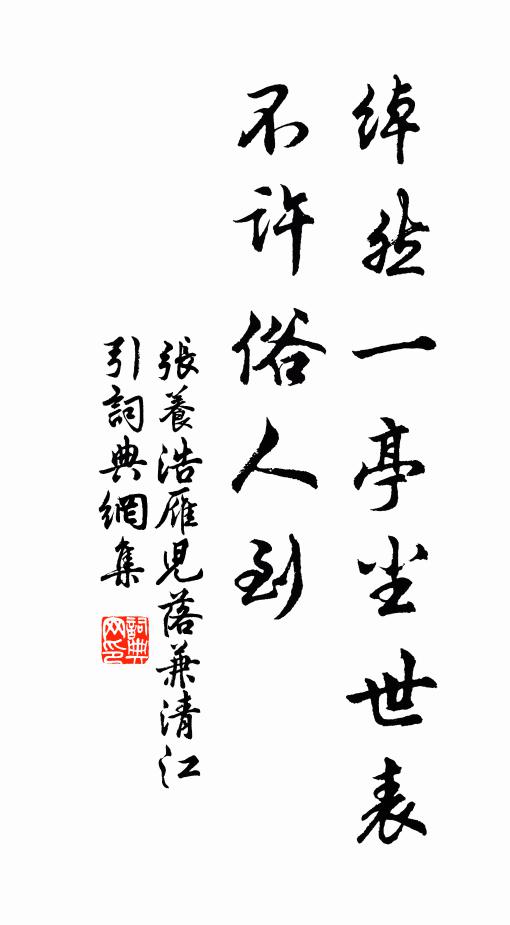 綽然一亭尘世表
不许俗人到
張養浩雁兒落兼清江
引詞典網集
詞典
网印